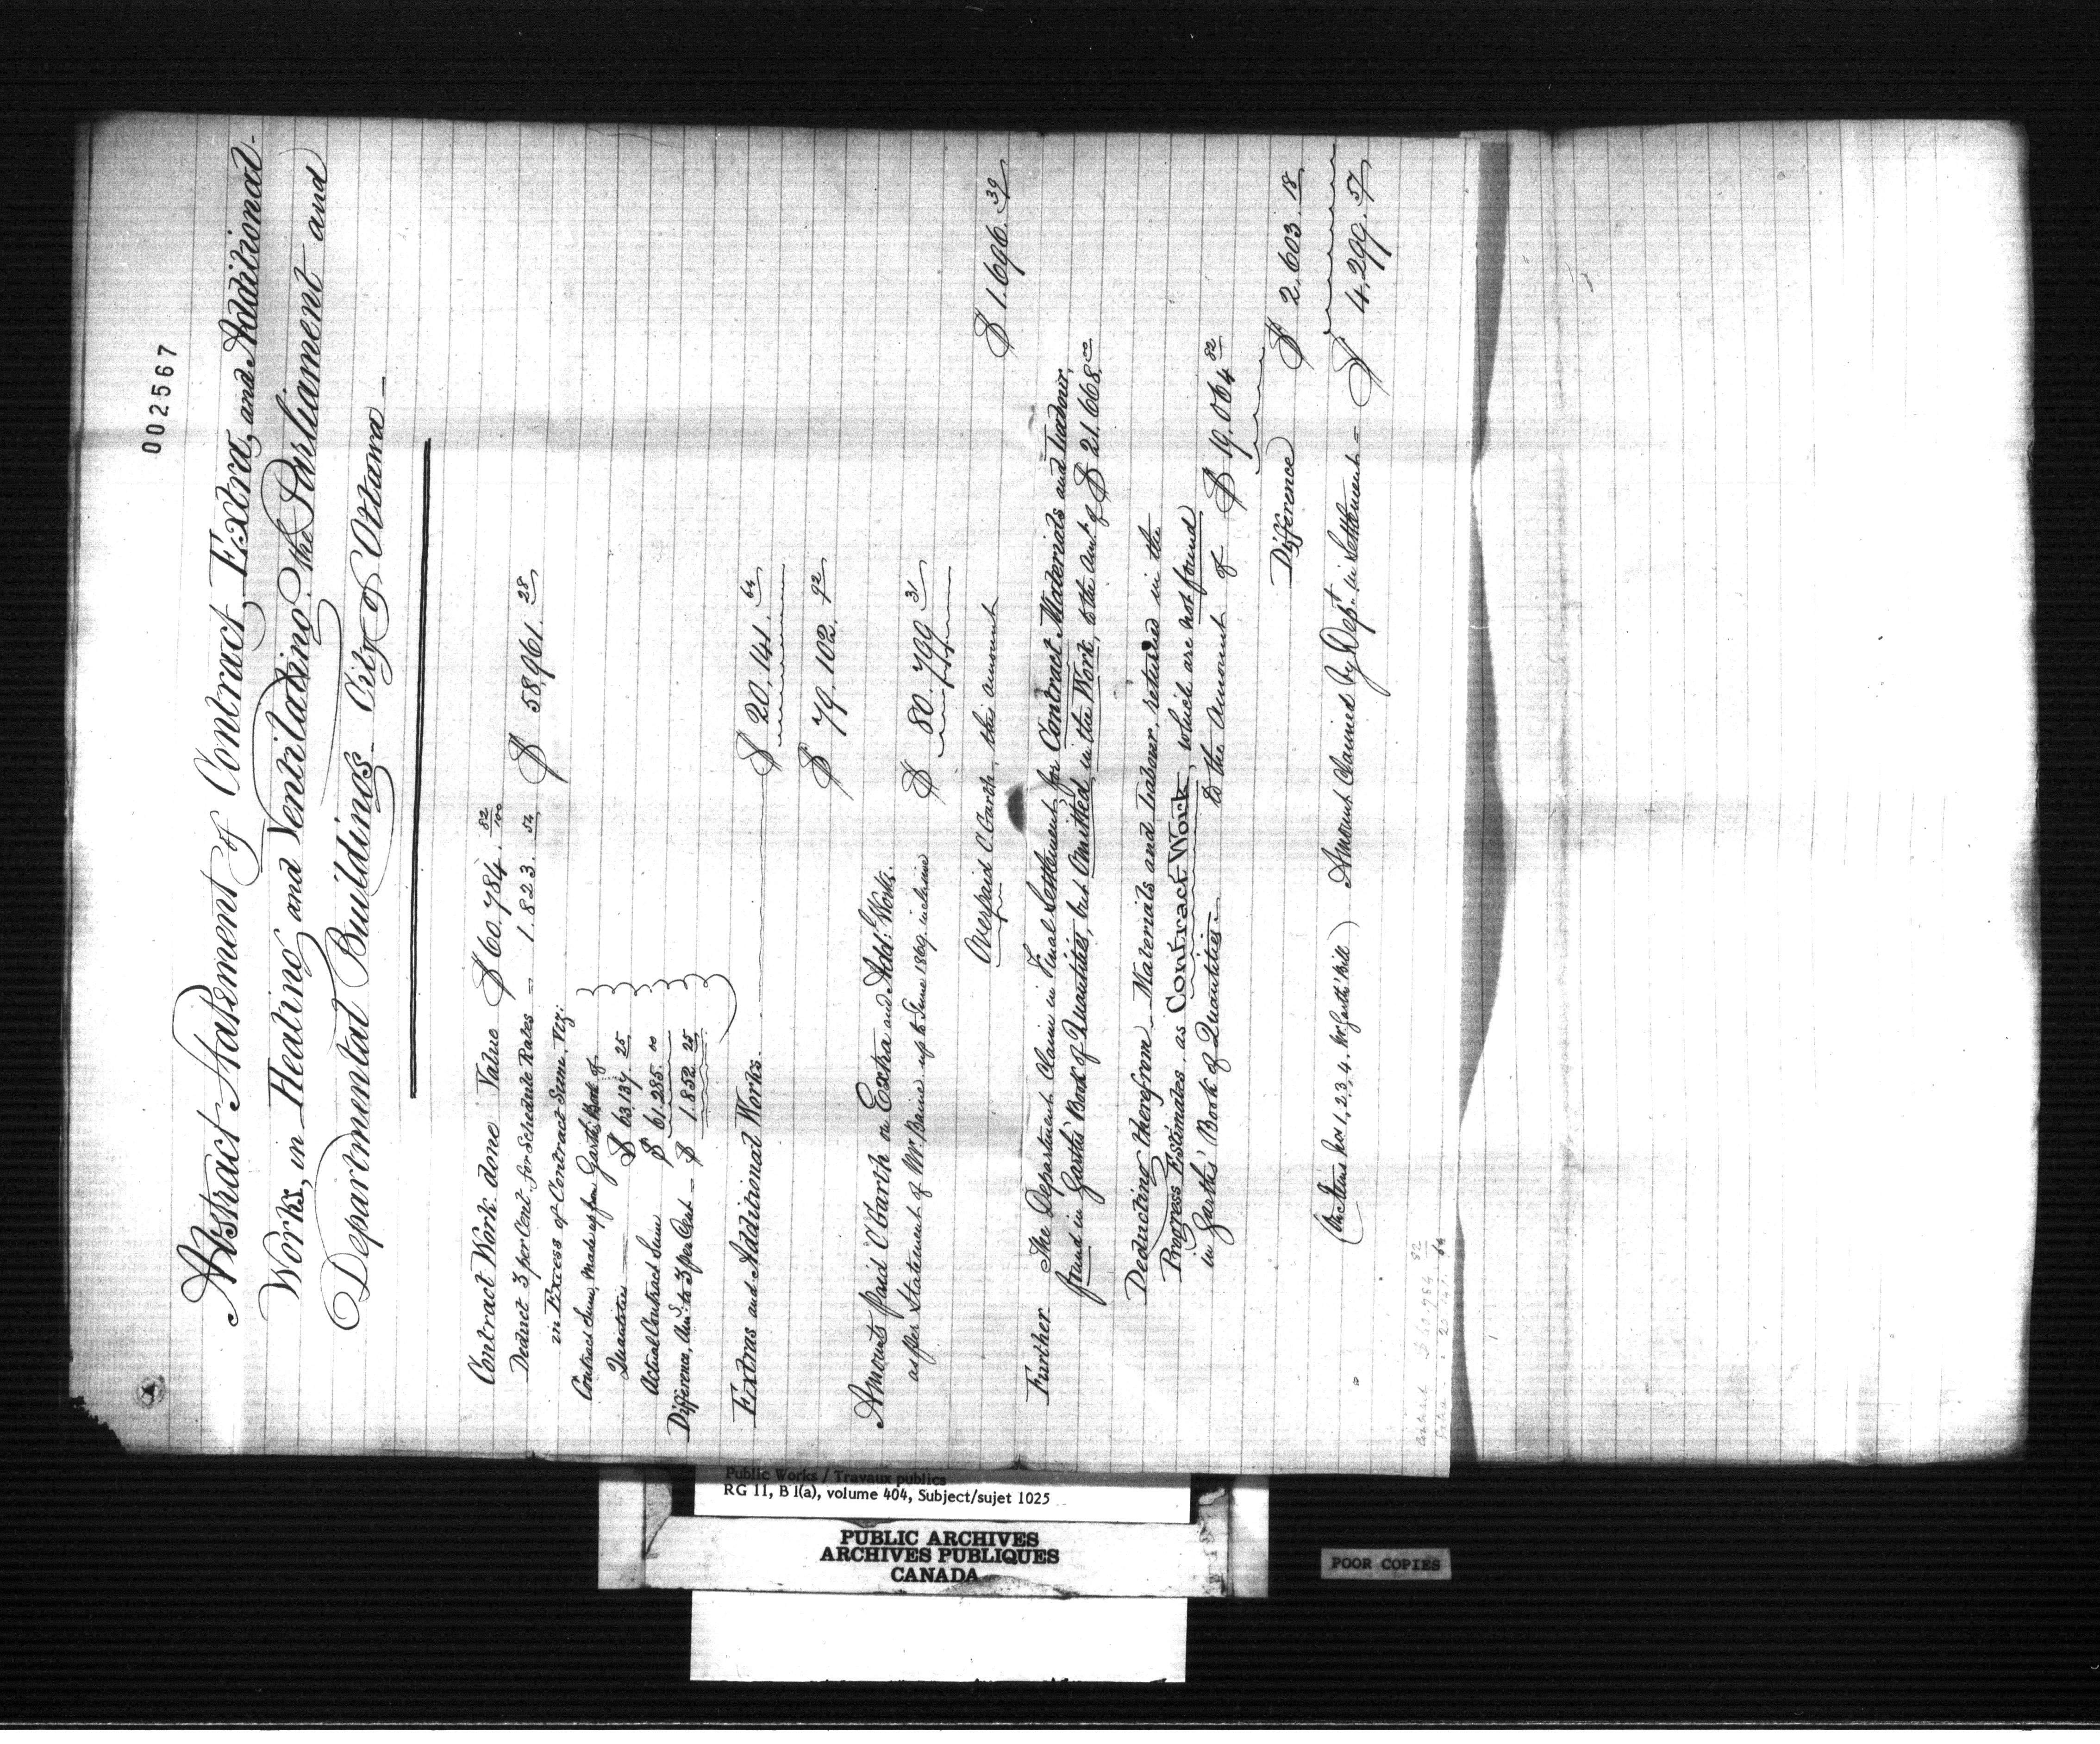 002567
Abstract Statement of Contract, Extra, and Additional
Works, in Heating and Ventilating the Parliament and
Departmental Buildings City of Ottawa
Contract Work done Value $60.784.82/100
Deduct 3 per Cent for Schedule Rates = 1.823.54 $ 58,961.28
in Excess of Contract Sum, Viz:
Contract Sum, Made up from Garth's Book of
Quantities — $ 63.137.25
Actual Contract Sum $ 61.285.00
Difference, Amt. to 3 per Cent = $ 1.852.25
Extras and Additional Works. $ 20.141.64
$ 79.102.92
Amounts Paid C. Garth on Extra and Addl. Works.
as per Statement of Mr. Baine up to June 1869 inclusive $ 80.799.31
Overpaid C. Garth, the amount $ 1.696.39
Further The Department Claim in Final Settlement, for Contract Materials and Labour,
found in Garth's Book of Quantities, but Omitted in the Work, to the Amt. of $ 21.668.00
Deducting therefrom – Materials and Labour, returned in the
Progress Estimates, as Contract Work, which are not found
in Garth's Book of Quantities – to the Amount of $ 19.064.82
Difference $ 2.603.18
(On Items Nos 1, 2, 3, 4, Mr Garth's Bill) Amount Claimed by Dept. in Settlement – $ 4.299.57
Contract $ 60.984.82
20.141.64
Public Works / Travaux publics
RG 11, B 1(a), volume 404, Subject/sujet 1025
PUBLIC ARCHIVES
ARCHIVES PUBLIQUES
CANADA
POOR COPIES